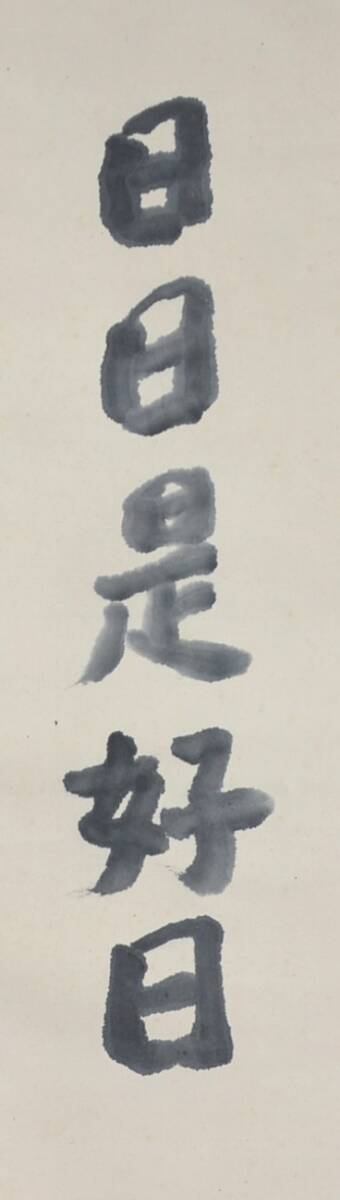 日日是好日